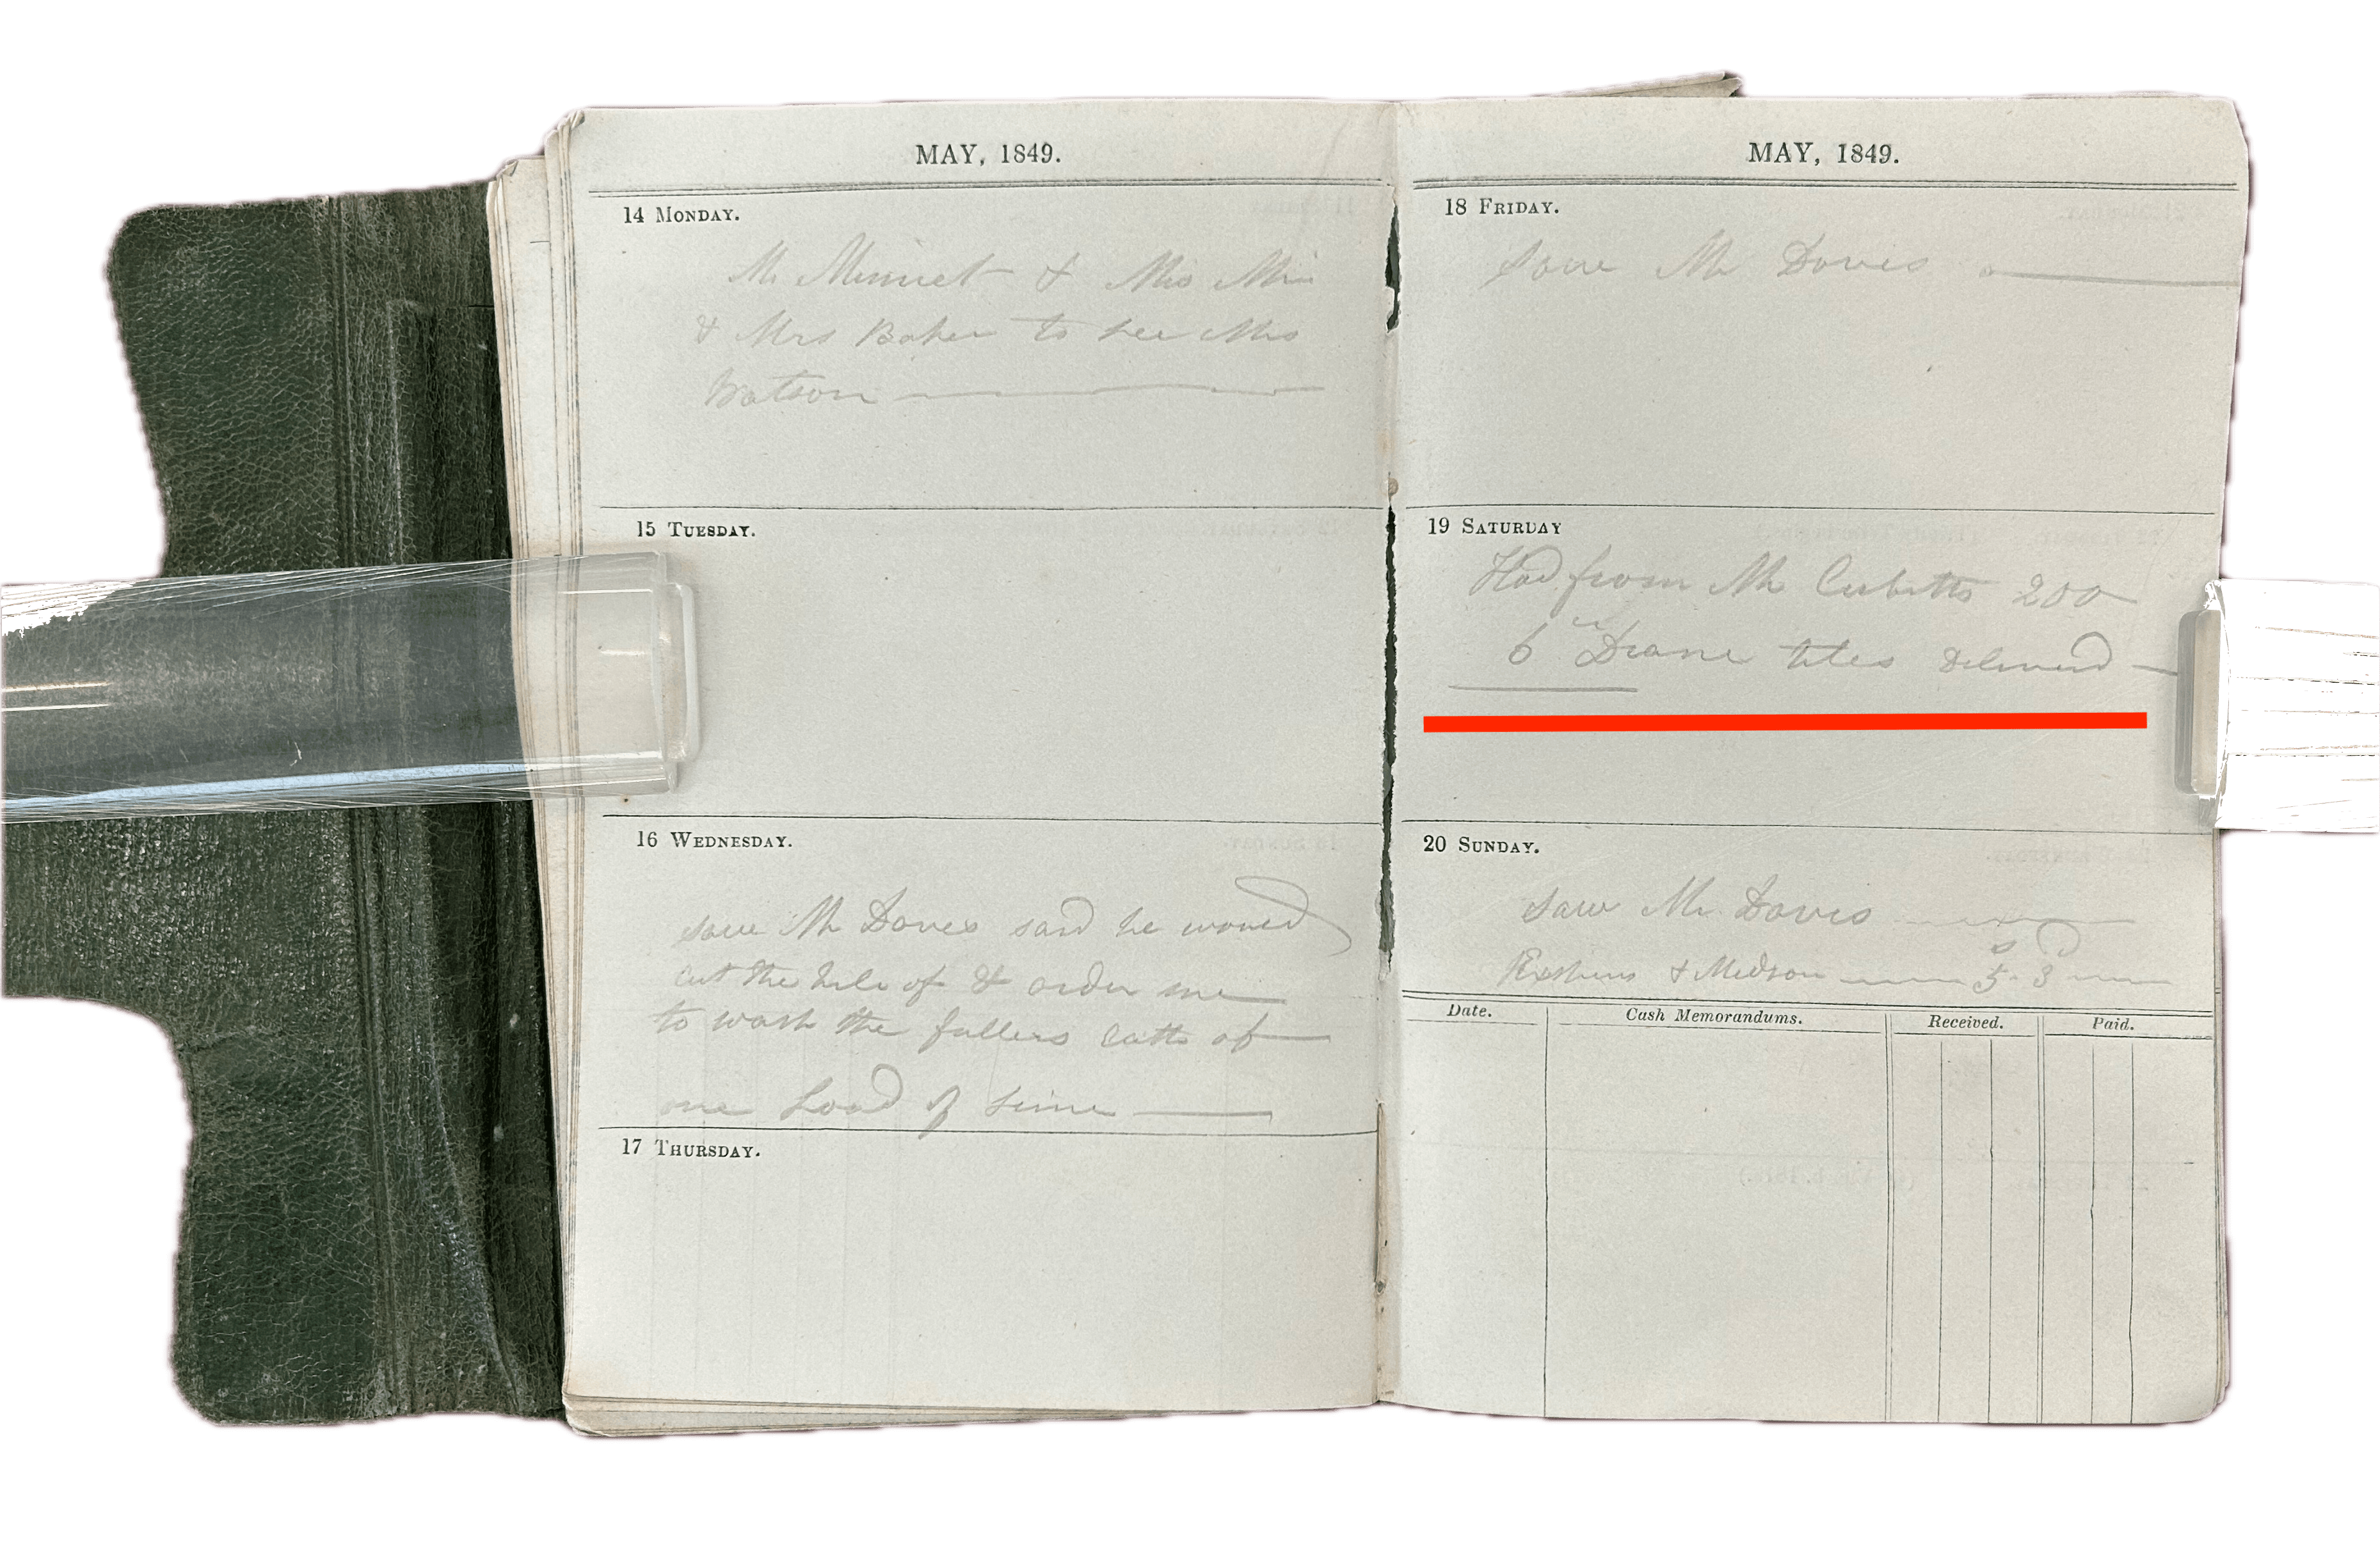 MAY, 1849.
14 MONDAY.
Mr Minnet & Mis Min
& Mrs Baker to see Mrs
Watson
15 TUESDAY.
16 WEDNESDAY.
saw Mr Daves said he would
cut the hile of & order me
to wash the fullers Earth of
one Load of Lime
17 THURSDAY.
MAY, 1849.
18 FRIDAY.
Saw Mr Daves
19 SATURDAY
Had from Mr Cubitts 200
6" Drane tiles Deliverd
20 SUNDAY.
Saw Mr Daves
& Medson 5 s 3 D
Date.
Cash Memorandums.
Received.
Paid.